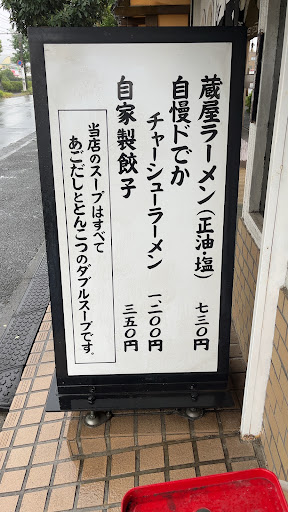 蔵屋ラーメン(正油・塩) 七三〇円
自慢ドでか
チャーシューラーメン 一、二〇〇円
自家製餃子 三五〇円
当店のスープはすべて
あごだしととんこつのダブルスープです。